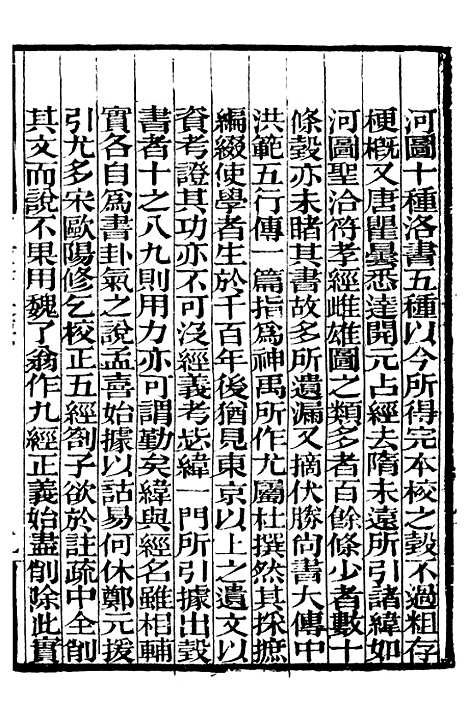 河圖十種洛書五種以今所得完本校之瑴不過粗存
梗槪又唐瞿曇悉達開元占經去隋未遠所引諸緯如
河圖聖洽符孝經雌雄圖之類多者百餘條少者數十
條瑴亦未睹其書故多所遺漏又摘伏勝尚書大傳中
洪範五行傳一篇指爲神禹所作尤屬杜撰然其採摭
編綴使學者生於千百年後猶見東京以上之遺文以
資考證其功亦不可沒經義考毖緯一門所引據出瑴
書者十之八九則用力亦可謂勤矣緯與經名雖相輔
實各自爲書卦氣之說孟喜始據以詁易何休鄭元援
引尤多宋歐陽修乞校正五經劄子欲於註疏中全削
其文而說不果用魏了翁作九經正義始盡削除此實